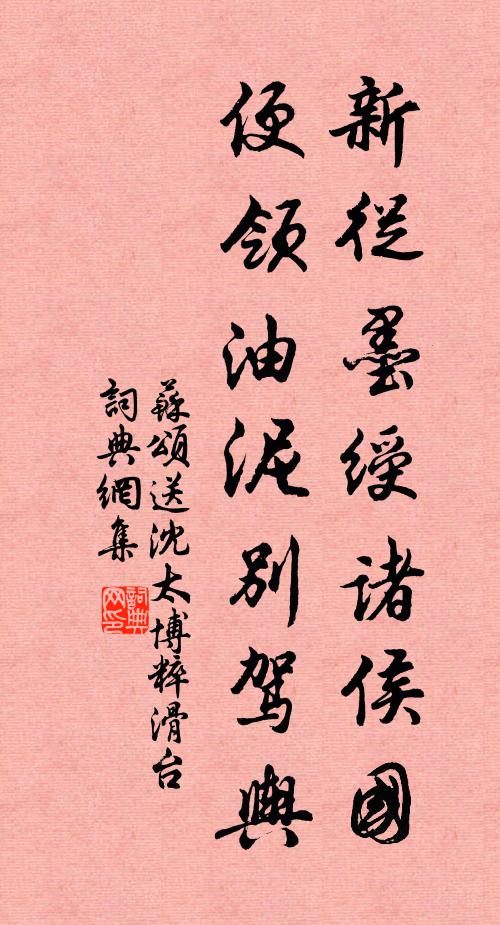 新從墨綬諸侯國
便領油泥別駕輿
蘇頌送沈太博粹滑台
詞典網集
詞典
网印